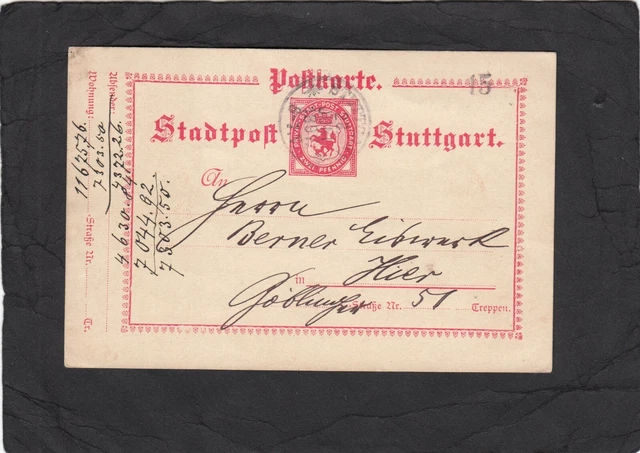 Postkarte.
15
Stadtpost Stuttgart.
PRIVAT-STADT-POST STUTTGART
ZWEI PFENNIG
An
Herrn
Berner Eiswerk
in Hier
Böblinger Straße Nr. 51 Treppen.
Absender:
Wohnung:
Straße Nr.
Tr.
1167576.
7303.50
4372.26.
7044.92
7303.50.